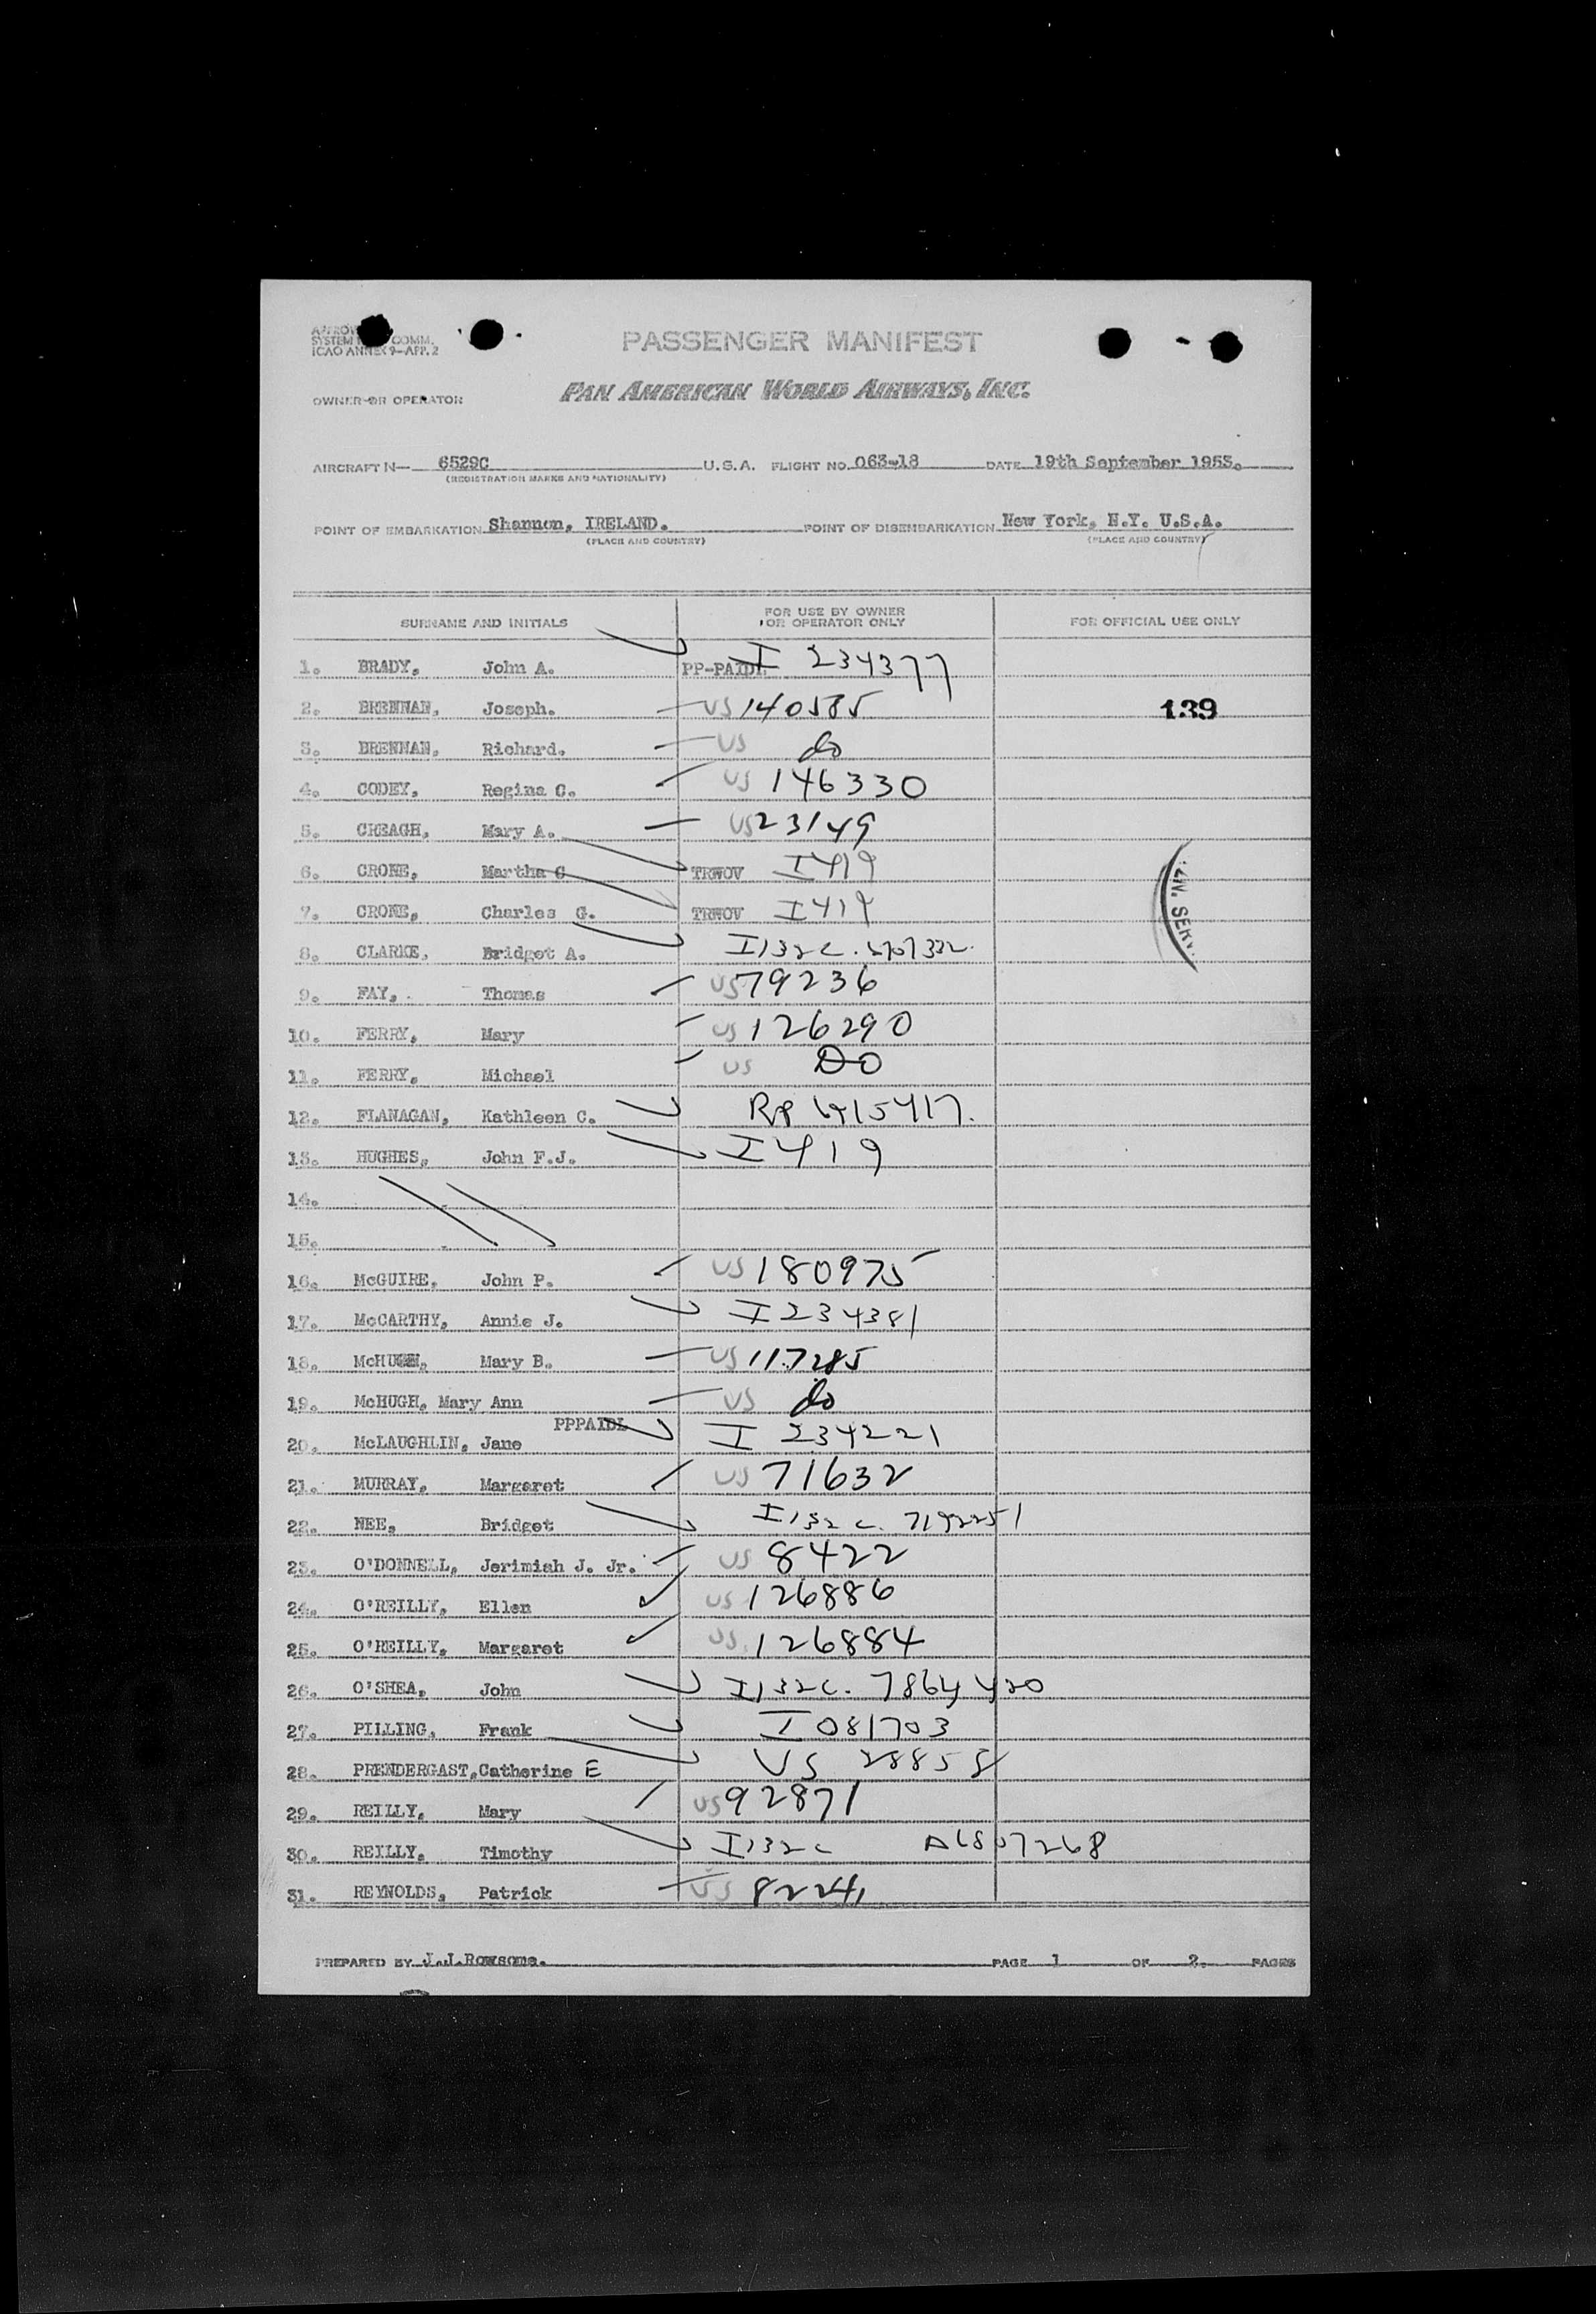 SYSTEM COMM.
ICAO ANNEX 9-APP. 2
PASSENGER MANIFEST
PAN AMERICAN WORLD AIRWAYS, INC.
OWNER OR OPERATOR
AIRCRAFT N- 6529C U.S.A. FLIGHT NO. 063-18 DATE 19th September 1953.
(REGISTRATION MARKS AND NATIONALITY)
POINT OF EMBARKATION Shannon, IRELAND. POINT OF DISEMBARKATION New York, N.Y. U.S.A.
(PLACE AND COUNTRY) (PLACE AND COUNTRY)
SURNAME AND INITIALS FOR USE BY OWNER OR OPERATOR ONLY FOR OFFICIAL USE ONLY
1. BRADY, John A. PP-PAIDL I 234377
2. BRENNAN, Joseph. US 140585 139
3. BRENNAN, Richard. US do
4. CODEY, Regina C. US 146330
5. CREAGH, Mary A. US 23149
6. CRONE, Martha C TRWOV I 419
7. CRONE, Charles G. TRWOV I 419
8. CLARKE, Bridget A. I 132c.
9. FAY, Thomas US 79236
10. FERRY, Mary US 126290
11. FERRY, Michael US DO
12. FLANAGAN, Kathleen C.
13. HUGHES, John F.J. I 419
14.
15.
16. McGUIRE, John P. US 180975
17. McCARTHY, Annie J. I 234381
18. McHUGH, Mary B. US 117285
19. McHUGH, Mary Ann US do
20. McLAUGHLIN, Jane PPPAIDL I 234221
21. MURRAY, Margaret US 71632
22. NEE, Bridget I 132c. 7192251
23. O'DONNELL, Jerimiah J. Jr. US 8422
24. O'REILLY, Ellen US 126886
25. O'REILLY, Margaret US 126884
26. O'SHEA, John I 132c. 7864420
27. PILLING, Frank I 081703
28. PRENDERGAST, Catherine E US 28858
29. REILLY, Mary US 92871
30. REILLY, Timothy I 132c A6807268
31. REYNOLDS, Patrick US 8224
PREPARED BY J.J.Rowsome. PAGE 1 OF 2. PAGES